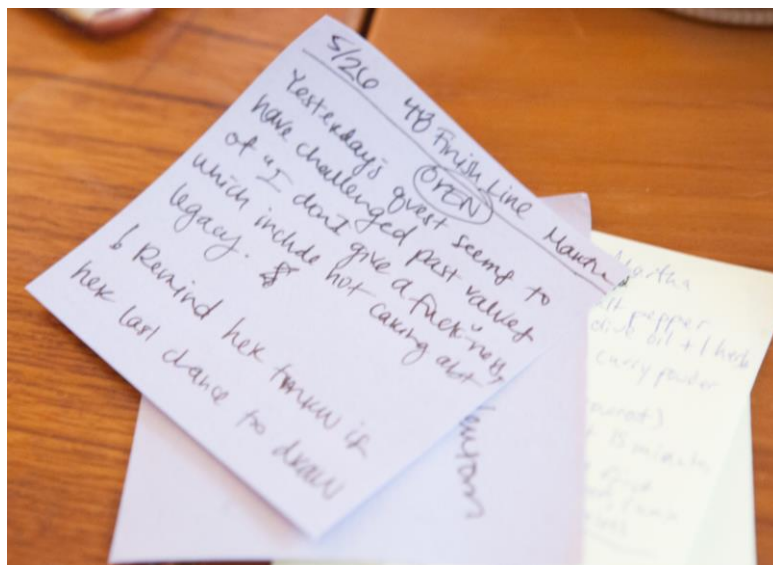 5/26 48 Finish Line Mantra
OPEN
Yesterday's quest seems to
have challenged past values
of "I don't give a fuck-ness,"
which include not caring abt
legacy.
Remind her tmrw is
her last chance to draw
Martha
pepper
olive oil + 1 herb
curry powder
15 minutes